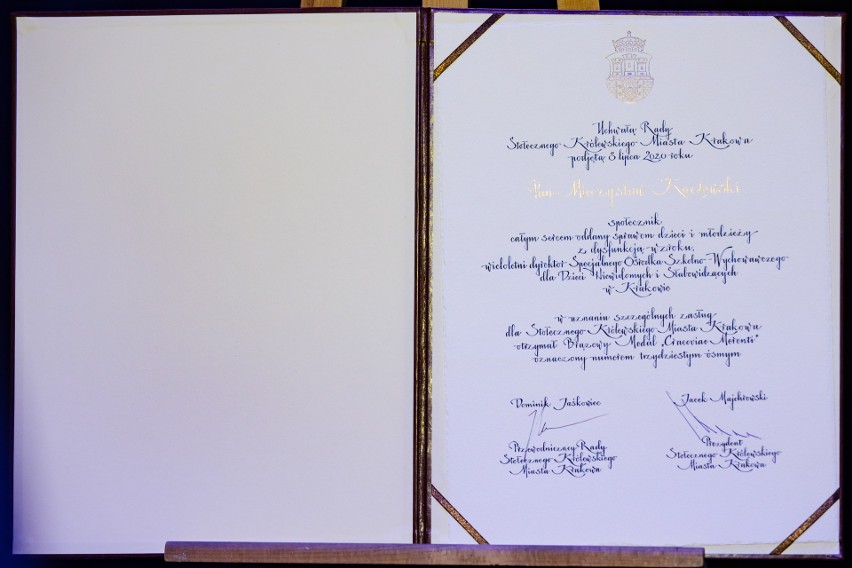 Uchwałą Rady
Stołecznego Królewskiego Miasta Krakowa
podjętą 8 lipca 2020 roku
Pan Mieczysław Kozłowski
społecznik
całym sercem oddany sprawom dzieci i młodzieży
z dysfunkcją wzroku,
wieloletni dyrektor Specjalnego Ośrodka Szkolno-Wychowawczego
dla Dzieci Niewidomych i Słabowidzących
w Krakowie
w uznaniu szczególnych zasług
dla Stołecznego Królewskiego Miasta Krakowa
otrzymał Brązowy Medal „Cracoviae Merenti"
oznaczony numerem trzydziestym ósmym
Dominik Jaśkowiec
Jacek Majchrowski
Przewodniczący Rady
Stołecznego Królewskiego
Miasta Krakowa
Prezydent
Stołecznego Królewskiego
Miasta Krakowa